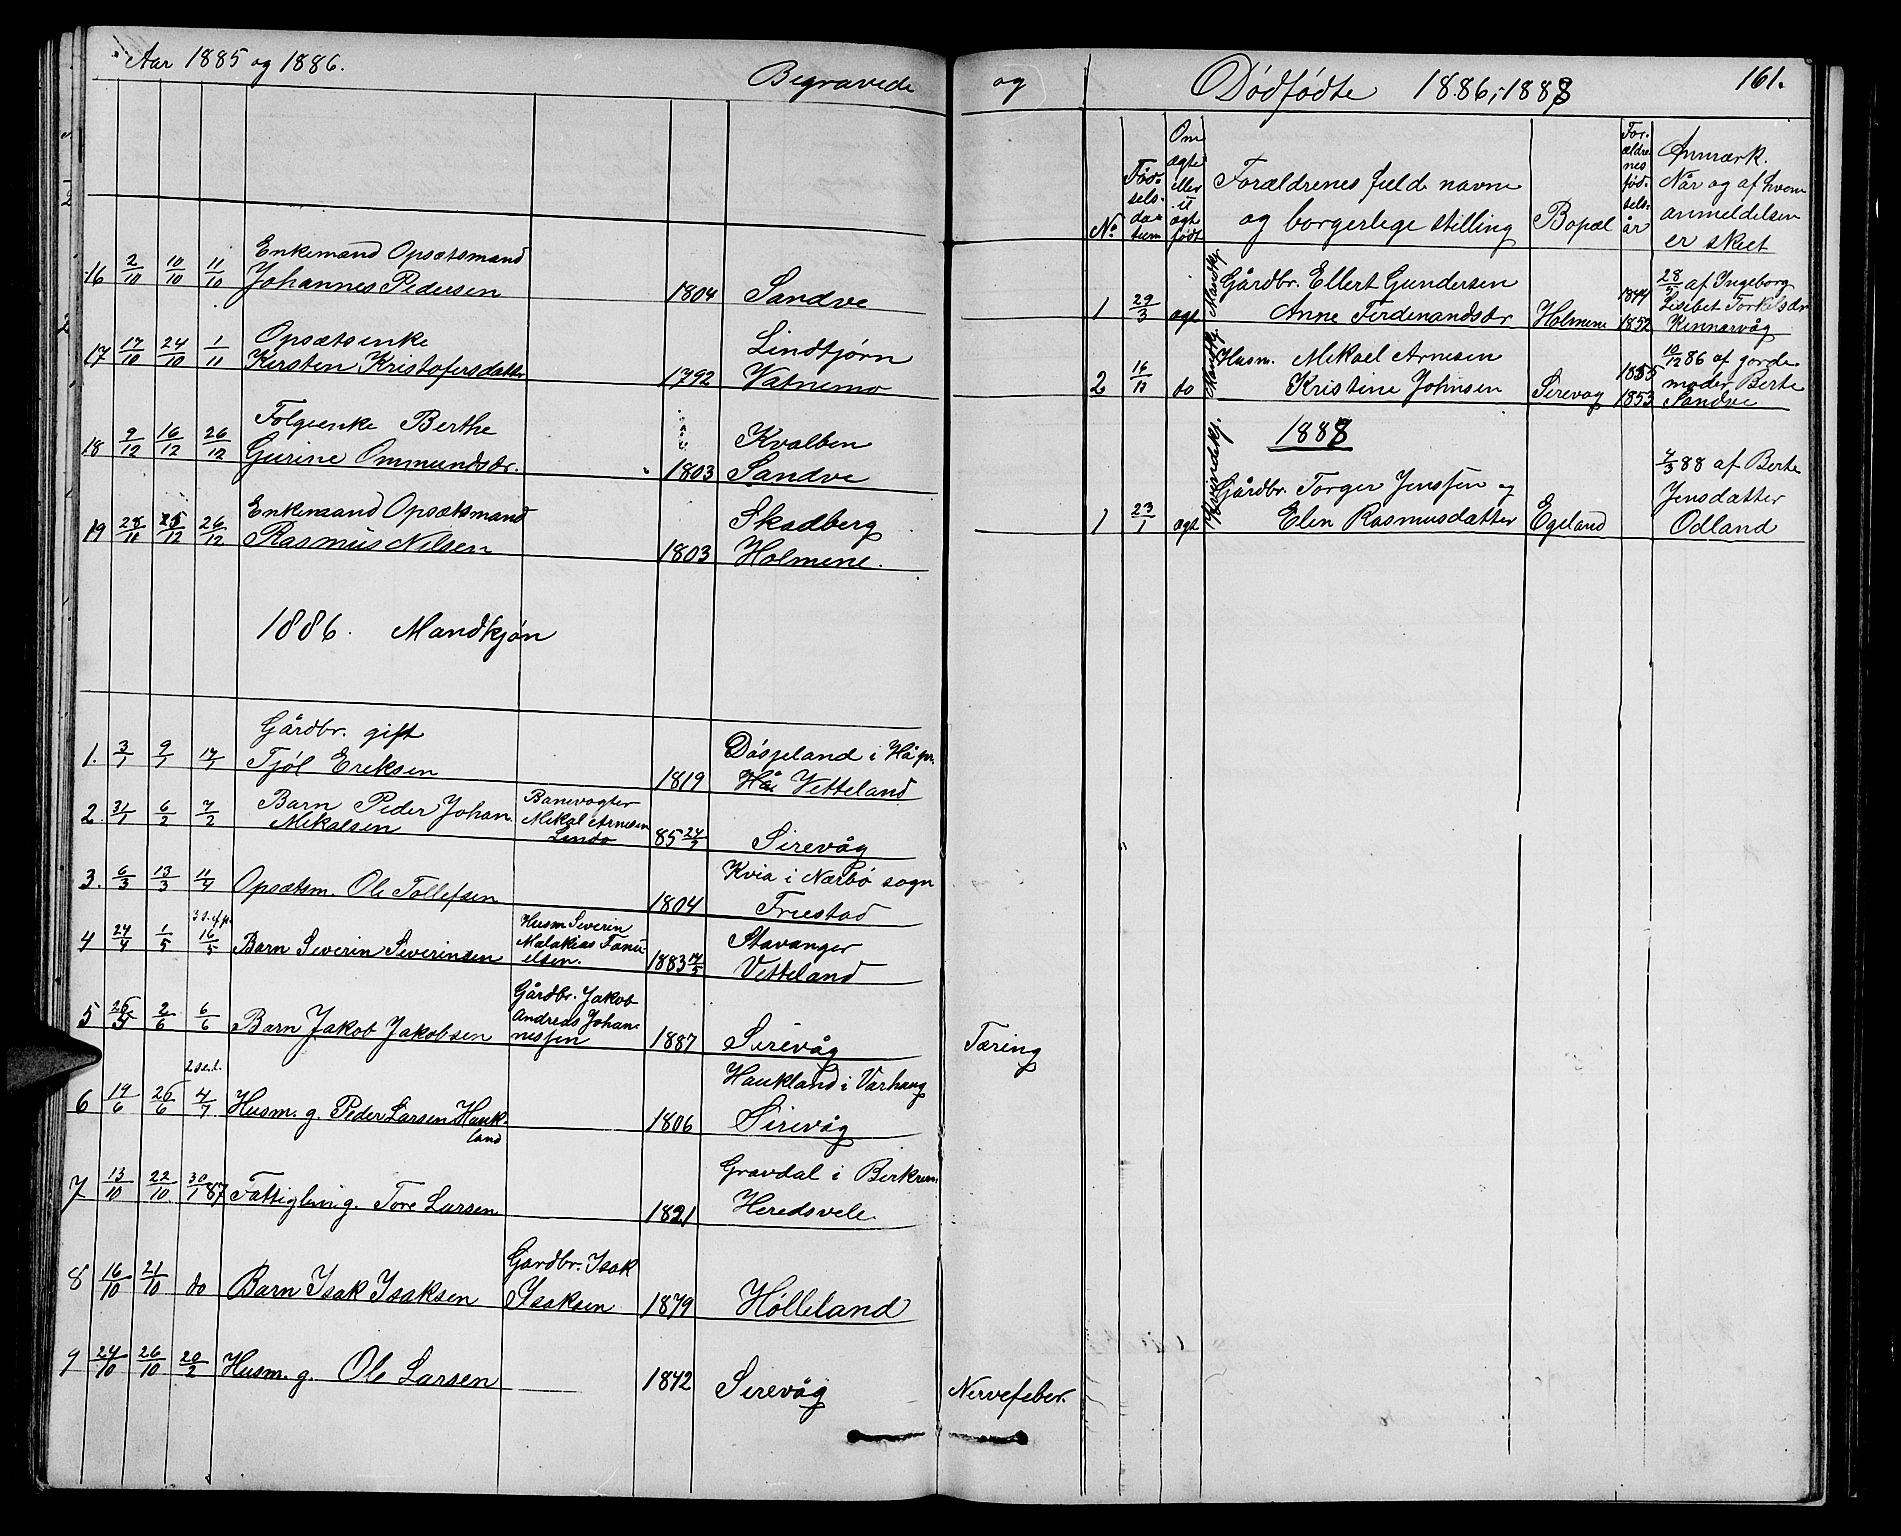 Aar 1885 og 1886.
Begravede
16 2/10 10/10 11/10 Enkemand Opsætsmand
Johannes Pedersen 1804 Sandve
17 17/10 24/10 1/11 Opsætsenke Lindtjørn
Kirsten Kristofersdatter 1792 Vatnemo
18 9/12 16/12 26/12 Følgeenke Berthe Kvalben
Gurine Ommundsdr. 1803 Sandve
19 28/11 /12 26/12 Enkemand Opsætsmand Skadberg
Rasmus Nilsen 1803 Holmene.
1886. Mandkjøn
1. 3/1 9/1 17/1 Gårdbr. gift Døsjeland i Hå pr.
Tjøl Eriksen 1819 Hå Vetteland
2. 31/1 6/2 7/2 Barn Peder Johan Banevogter
Mikalsen Mikal Arnesen
Lindø 85 24/7 Sirevåg
3. 6/3 13/3 11/4 Opsætsm. Ole Tollefsen 1804 Kvia i Nærbø sogn
Friestad
4 24/4 1/5 3 s. e. p. 16/5 Barn Severin Severinsen Husm Severin
Malakias Tønn
elsen. 1883 17/5 Stavanger
Vetteland
5 2/6 6/6 Barn Jakob Jakobsen Gårdbr. Jakob
Andreas Johan
nessen 1887 Sirevåg Tæring
6 19/6 26/6 2 s. e. t. 4/7 Husm. g. Peder Larsen Hauk-
land 1806 Haukland i Varhaug
Sirevåg
7 13/10 22/10 30/1 87 Fattiglem g. Tore Larsen 1821 Gravdal i Birkrem.
Heredsvele
8 16/10 21/10 do Barn Isak Isaksen Gardbr. Isak
Isaksen 1879 Hølleland
9 24/10 26/10 20/2 Husm. g. Ole Larsen 1842 Sirevåg Nervefeber.
og Dødfødte 1886, 1888 161.
No Fød-
sels-
da-
tum
Om
ægte
eller
u
ægt
født
Forældrenes fuld navne
og borgerlege stilling
Bopæl
For-
ældre
nes
fød-
sels-
år
Anmærk.
Når og af hvem
anmeldelsen
er skeet
1 29/3 ægt Mandkj. Gårdbr. Ellert Gundersen 1844 28/5 af Ingeborg
Anne Ferdenandsdr Holmene 1852 Lisebet Torkelsdr
Kinnarvåg
2 16/11 do Mandkj. Husm. Mikael Arnesen 1855 10/12 86 af jorde
Kristine Johnsen Sirevåg 1853 moder Berte
Sandve
1888
1 23/1 ægt Kvindekj. Gårdbr. Torger Jenssen og 7/3 88 af Berte
Elen Rasmusdatter Egeland Jensdatter
Odland